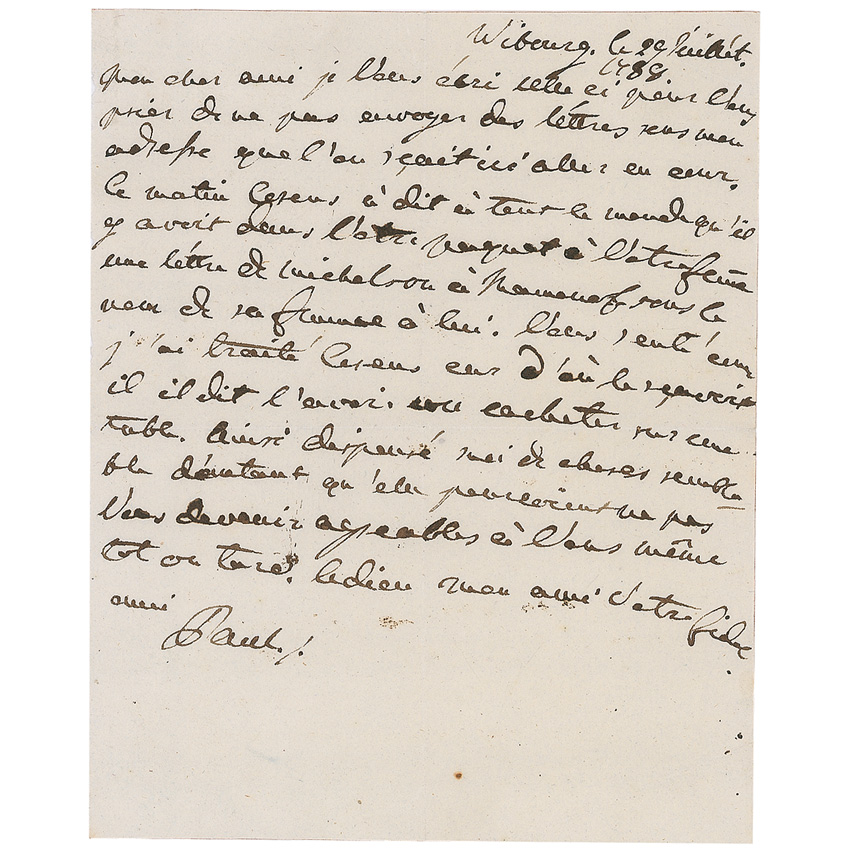 Wibourg. le 29 Juillét.
1788.
mon cher ami je Vous écri celle ci pour Vous
prier de ne pas envoyer des léttres sous mon
adresse que l'on sçait ici aller en
le matin à dit à tout le monde qu'il
y avoit dans Votre paquet à Votre feme
une léttre de michelson à Mamonof sous le
nom de sa femme à lui. Vous
j'ai traité d'où le sçavoit
il il dit l'avoir vu cacheter sur une
table. Ainsi dispensé moi de choses sembla
ble d'autant qu'elle pouroient ne pas
Vous devenir agreables à Vous même
tot ou tard. Adieu mon ami Votre fidel
ami
Paul./.